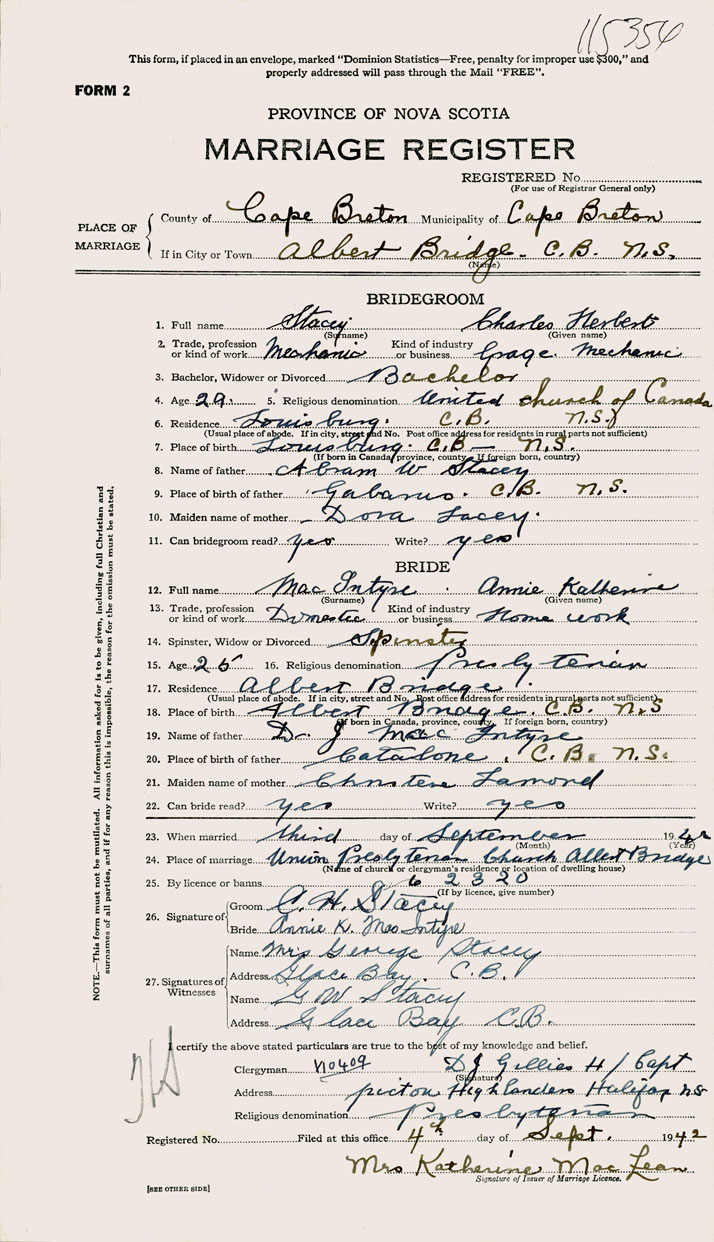 115354
This form, if placed in an envelope, marked "Dominion Statistics—Free, penalty for improper use $300," and
properly addressed will pass through the Mail "FREE".
FORM 2
PROVINCE OF NOVA SCOTIA
MARRIAGE REGISTER
REGISTERED No.
(For use of Registrar General only)
PLACE OF MARRIAGE
County of Cape Breton Municipality of Cape Breton
If in City or Town Albert Bridge. C.B. N.S.
(Name)
BRIDEGROOM
1. Full name Stacey Charles Herbert
(Surname) (Given name)
2. Trade, profession or kind of work Mechanic Kind of industry or business Grage Mechanic
3. Bachelor, Widower or Divorced Bachelor
4. Age 29. 5. Religious denomination United Church of Canada
6. Residence Louisburg. C.B. N.S.
(Usual place of abode. If in city, street and No. Post office address for residents in rural parts not sufficient)
7. Place of birth Louisburg. C.B. N.S.
(If born in Canada, province, county. If foreign born, country)
8. Name of father Abram W Stacey
9. Place of birth of father Gabarus. C.B. N.S.
10. Maiden name of mother Dora Lacey.
11. Can bridegroom read? yes Write? yes
BRIDE
12. Full name Mac Intyre Annie Katherine
(Surname) (Given name)
13. Trade, profession or kind of work Domestic Kind of industry or business Home work
14. Spinster, Widow or Divorced Spinster
15. Age 26 16. Religious denomination Presbyterian
17. Residence Albert Bridge.
(Usual place of abode. If in city, street and No. Post office Address for residents in rural parts not sufficient)
18. Place of birth Albert Bridge. C.B. N.S
(If born in Canada, province, county. If foreign born, country)
19. Name of father D. J Mac Intyre
20. Place of birth of father Catalone, C.B. N.S.
21. Maiden name of mother Christene Lamond
22. Can bride read? yes Write? yes
23. When married third day of September 1942
(Month) (Year)
24. Place of marriage Union Presbyterian Church Albert Bridge
(Name of church or clergyman's residence or location of dwelling house)
25. By licence or banns 62320
(If by licence, give number)
26. Signature of
Groom C. H. Stacey
Bride Annie K. Mac Intyre
27. Signatures of Witnesses
Name Mrs George Stacey
Address Glace Bay. C.B.
Name G W Stacey
Address Glace Bay C.B.
I certify the above stated particulars are true to the best of my knowledge and belief.
Clergyman No 409 D J Gillies H/Capt
(Signature)
Address Pictou Highlanders Halifax NS
Religious denomination Presbyterian
Registered No. Filed at this office 4th day of Sept. 1942
Mrs Katherine Mac Lean
Signature of Issuer of Marriage Licence.
[SEE OTHER SIDE]
NOTE.—This form must not be mutilated. All information asked for is to be given, including full Christian and
surnames of all parties, and if for any reason this is impossible, the reason for the omission must be stated.